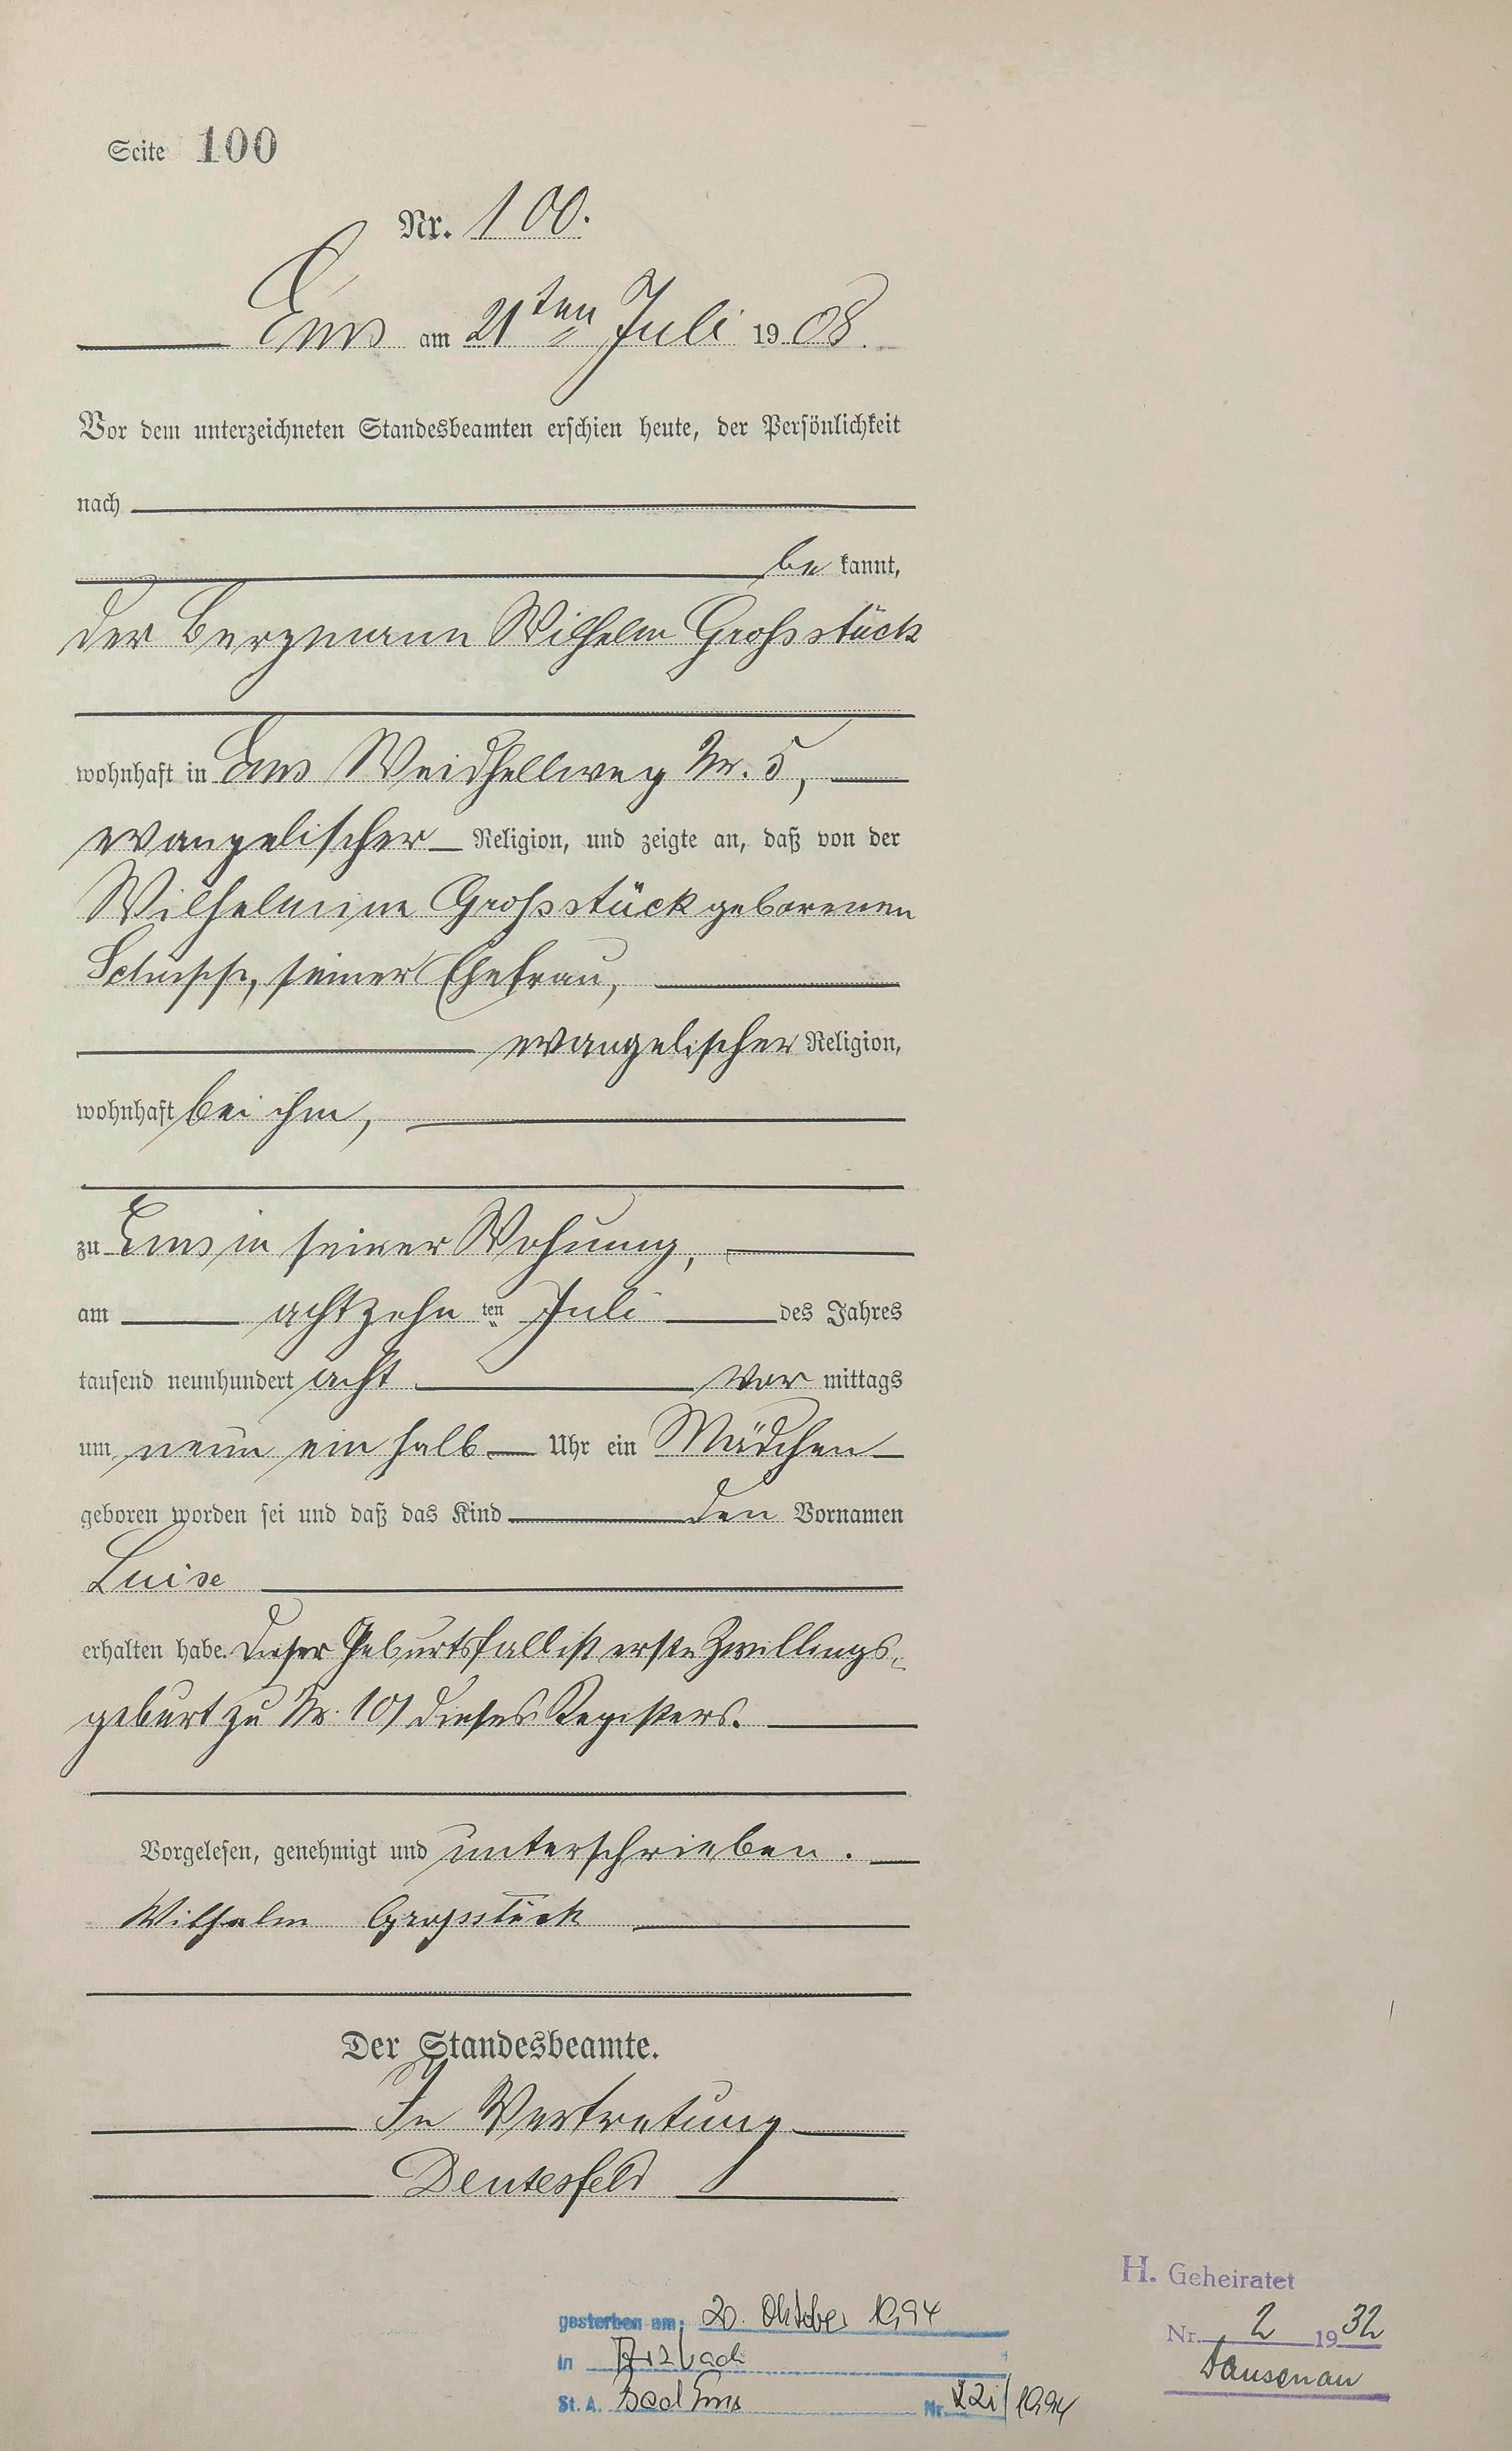 Seite 100
Nr. 100.
Ems am 21ten Juli 1908.
Vor dem unterzeichneten Standesbeamten erschien heute, der Persönlichkeit
nach
be kannt,
der Bergmann Wilhelm Grossstück
wohnhaft in Ems Weidhellweg Nr. 5,
evangelischer Religion, und zeigte an, daß von der
Wilhelmine Grossstück geborenen
seiner Ehefrau,
evangelischer Religion,
wohnhaft bei ihm,
zu Ems in seiner Wohnung,
am achtzehn ten Juli des Jahres
tausend neunhundert acht vor mittags
um neun ein halb Uhr ein Mädchen
geboren worden sei und daß das Kind den Vornamen
Luise
erhalten habe. Dieser Geburtsfall ist erste Zwillings-
geburt zu Nr. 101 dieses Registers.
Vorgelesen, genehmigt und unterschrieben.
Wilhelm Grossstück
Der Standesbeamte.
In Vertretung
Deutesfeld
H. Geheiratet
gestorben am: 20. Oktober 1994
Nr. 2 1932
in Arzbach
Dausenau
St. A. Bad Ems Nr. /1994